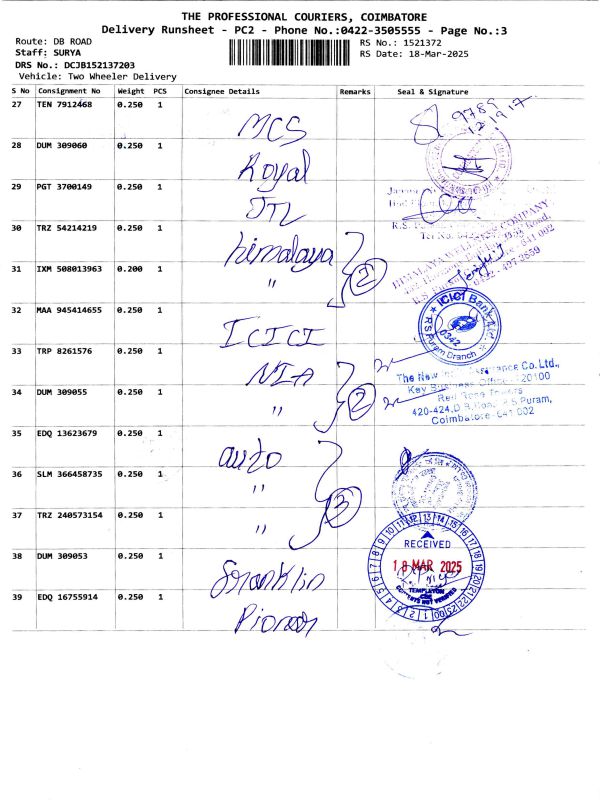 THE PROFESSIONAL COURIERS, COIMBATORE
Delivery Runsheet - PC2 - Phone No.:0422-3505555 - Page No.:3
Route: DB ROAD
RS No.: 1521372
Staff: SURYA
RS Date: 18-Mar-2025
DRS No.: DCJB152137203
Vehicle: Two Wheeler Delivery
S No Consignment No Weight PCS Consignee Details Remarks Seal & Signature
27 TEN 7912468 0.250 1 MCS
28 DUM 309060 0.250 1 Royal
29 PGT 3700149 0.250 1 JTL
30 TRZ 54214219 0.250 1 himalaya
31 IXM 508013963 0.200 1 " 2
HIMALAYA WELLNESS COMPANY
32 MAA 945414655 0.250 1 ICICI
ICICI Bank Ltd.
R S Puram Branch
0342
33 TRP 8261576 0.250 1 NIA
34 DUM 309055 0.250 1 " 2
The New Assurance Co.Ltd.,
Key Business Office - 720100
Red Rose Towers
420-424, D.B.Road, R.S Puram,
Coimbatore-641 002
35 EDQ 13623679 0.250 1 auto
36 SLM 366458735 0.250 1 "
37 TRZ 240573154 0.250 1 " 3
38 DUM 309053 0.250 1 Franklin
RECEIVED
18 MAR 2025
TEMPLETON
CONTENTS NOT VERIFIED
39 EDQ 16755914 0.250 1 Pioneer